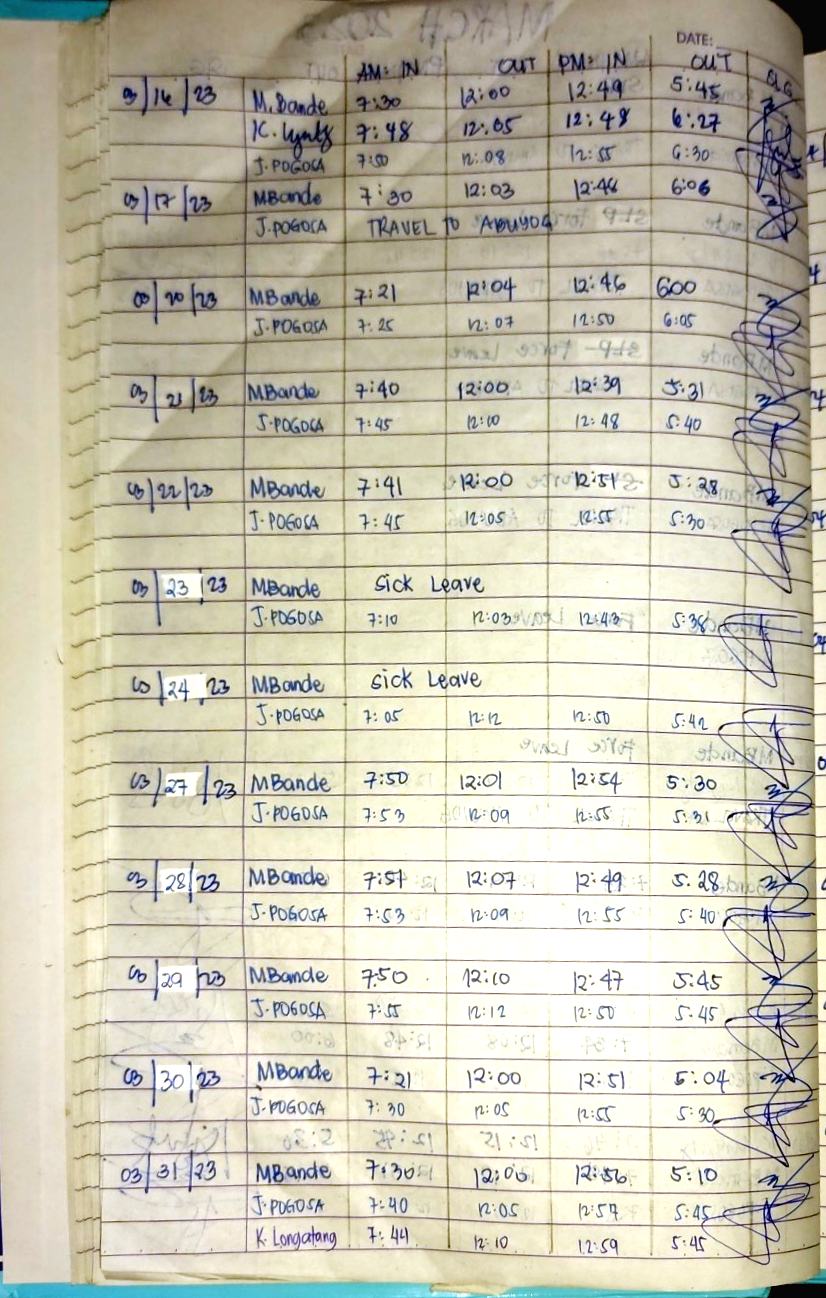 DATE:
AM: IN OUT PM: IN OUT SLG
3/16/23 M.Bande 7:30 12:00 12:49 5:45
K. 7:48 12:05 12:48 6:27
J.POGOSA 7:50 12:08 12:55 6:30
03/17/23 MBande 7:30 12:03 12:46 6:06
J.POGOSA TRAVEL TO ABUYOG
03/20/23 MBande 7:21 12:04 12:46 600
J.POGOSA 7:25 12:07 12:50 6:05
03/21/23 MBande 7:40 12:00 12:39 5:31
J.POGOSA 7:45 12:10 12:48 5:40
03/22/23 MBande 7:41 12:00 12:51 5:28
J.POGOSA 7:45 12:05 12:55 5:30
03/23/23 MBande Sick Leave
J.POGOSA 7:10 12:03 12:43 5:38
03/24/23 MBande Sick Leave
J.POGOSA 7:05 12:12 12:50 5:42
03/27/23 MBande 7:50 12:01 12:54 5:30
J.POGOSA 7:53 12:09 12:55 5:31
03/28/23 MBande 7:51 12:07 12:49 5:28
J.POGOSA 7:53 12:09 12:55 5:40
03/29/23 MBande 7:50 12:10 12:47 5:45
J.POGOSA 7:55 12:12 12:50 5:45
03/30/23 MBande 7:21 12:00 12:51 5:04
J.POGOSA 7:30 12:05 12:55 5:30
03/31/23 MBande 7:30 12:00 12:56 5:10
J.POGOSA 7:40 12:05 12:57 5:45
K. Longatang 7:44 12:10 12:59 5:45